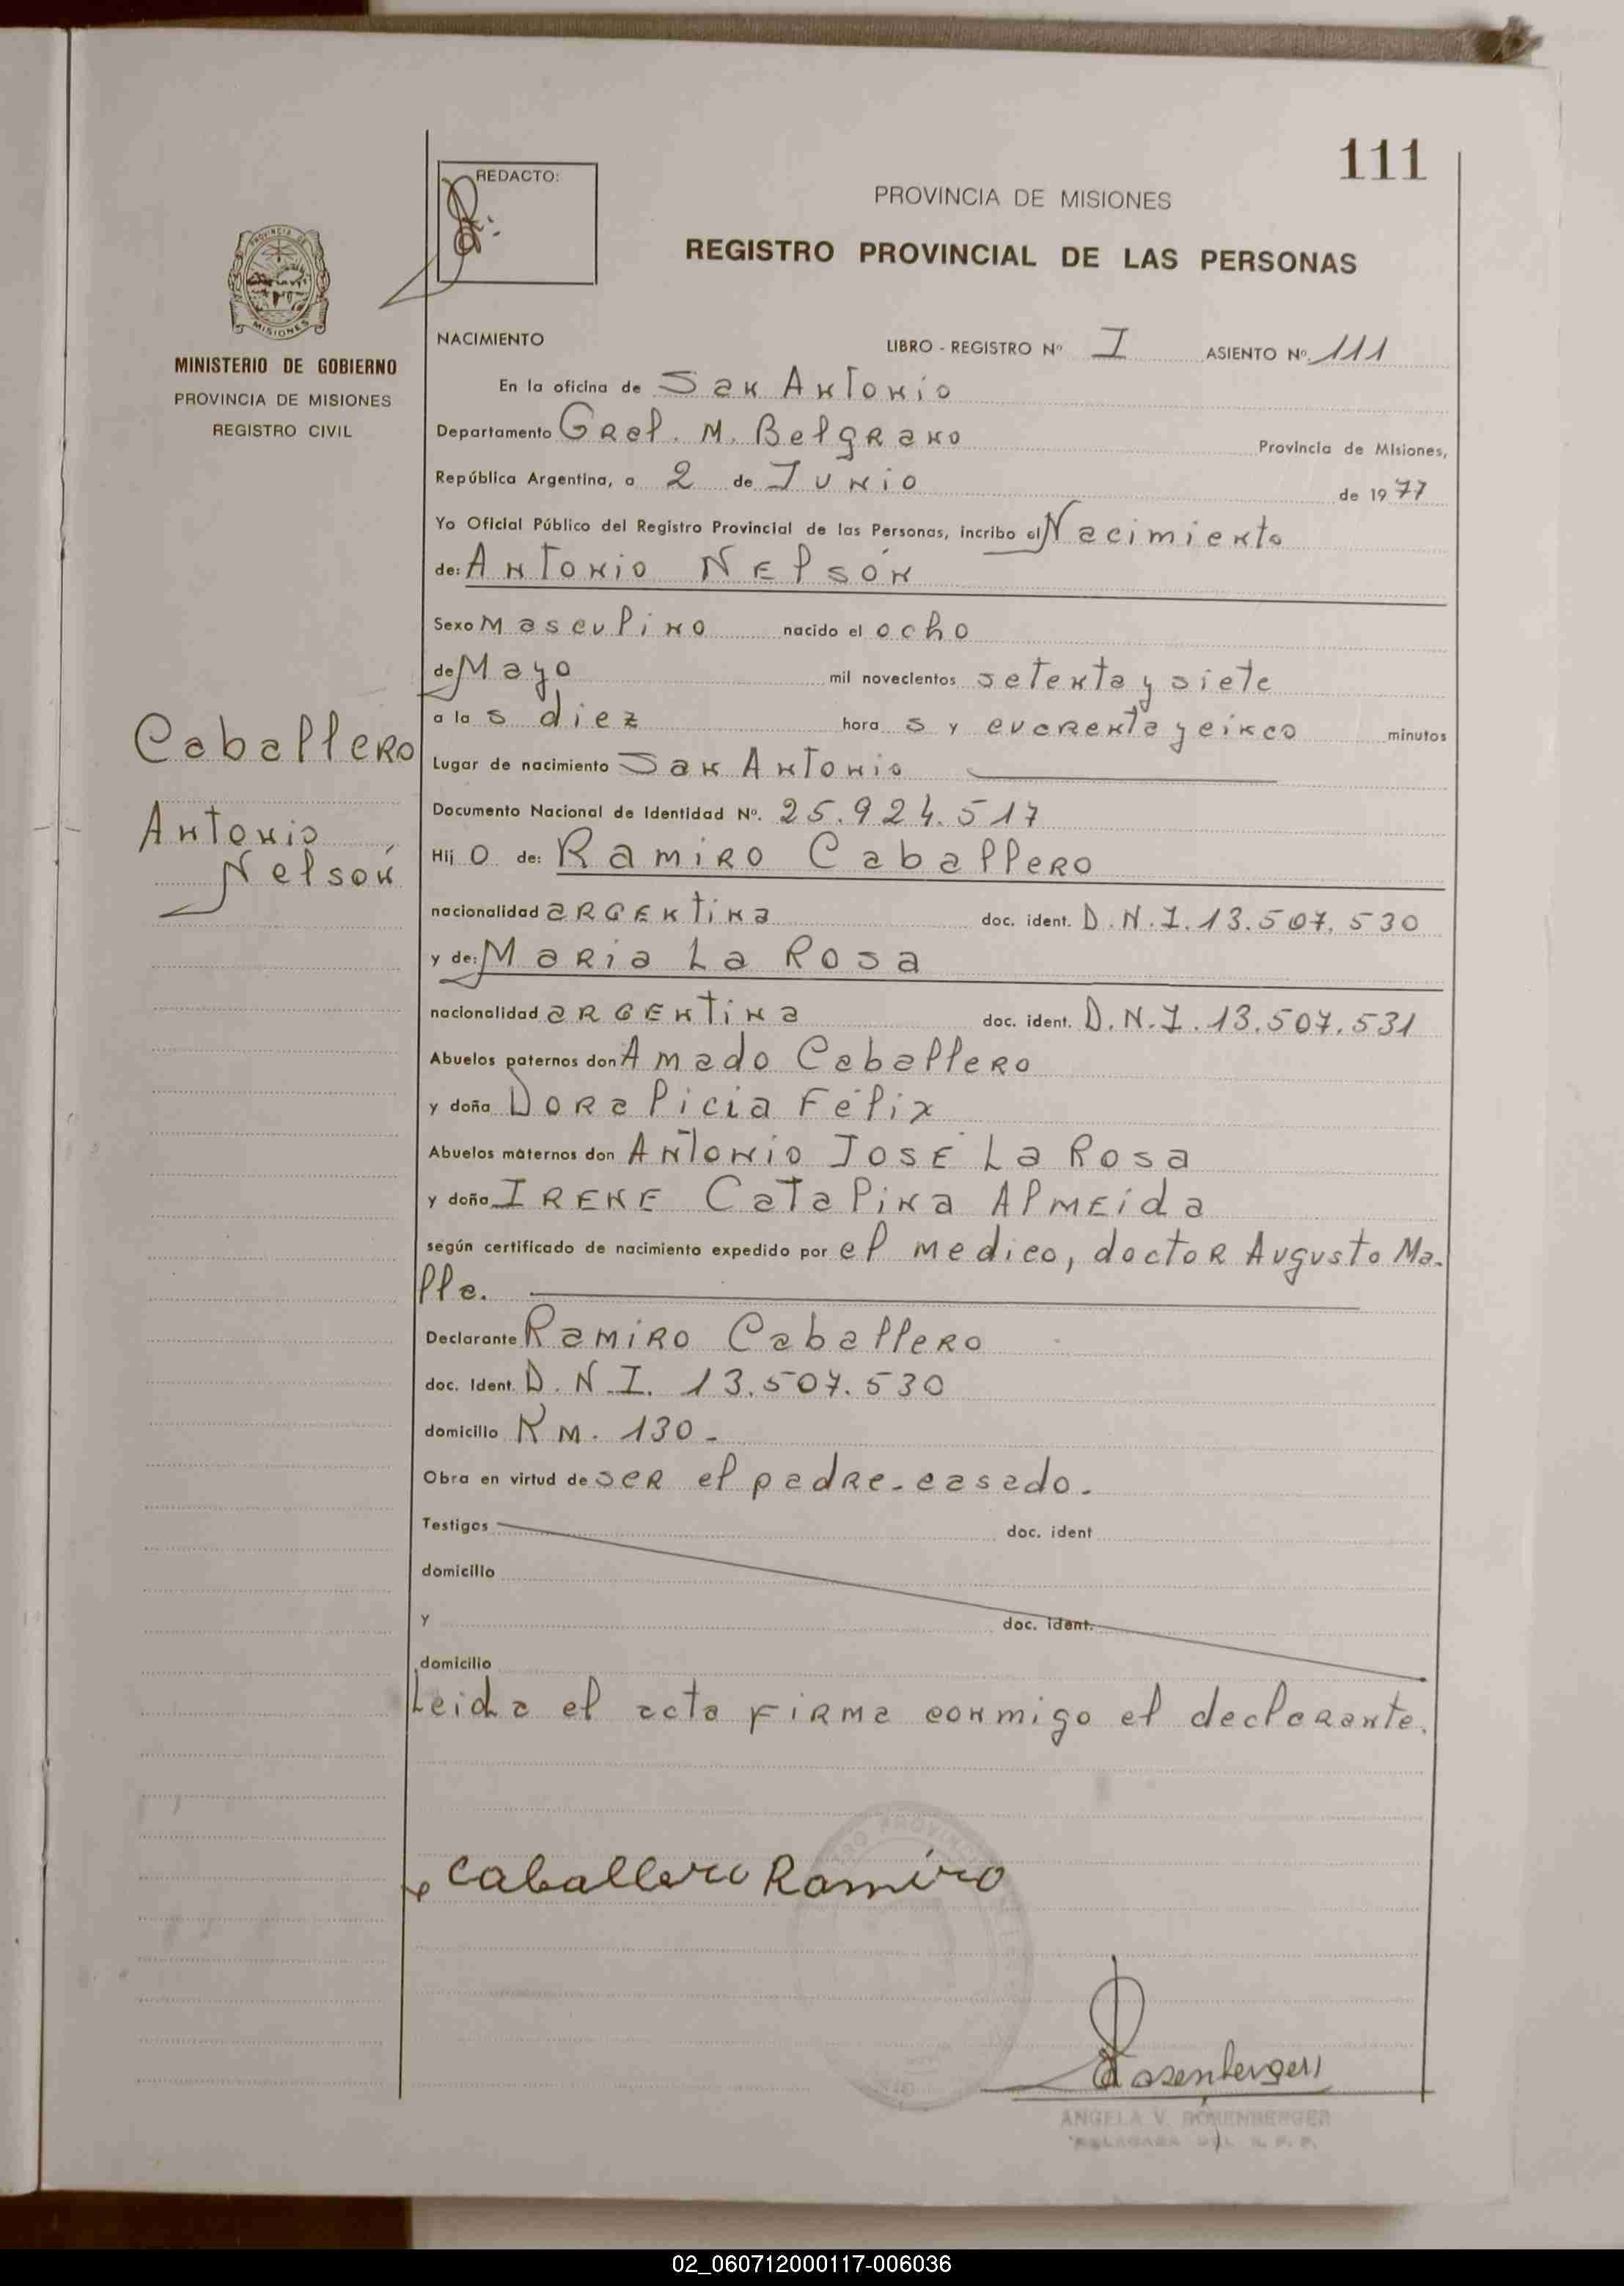 111
REDACTO:
PROVINCIA DE MISIONES
REGISTRO PROVINCIAL DE LAS PERSONAS
PROVINCIA DE
MISIONES
MINISTERIO DE GOBIERNO
PROVINCIA DE MISIONES
REGISTRO CIVIL
NACIMIENTO LIBRO - REGISTRO Nº I ASIENTO Nº. 111
En la oficina de San Antonio
Departamento Gral. M. Belgrano Provincia de Misiones,
República Argentina, a 2 de Junio de 1977
Yo Oficial Público del Registro Provincial de las Personas, incribo el Nacimiento
de: Antonio Nelsón
Sexo Masculino nacido el ocho
de Mayo mil novecientos setenta y siete
a la s diez hora s y cuarenta y cinco minutos
Caballero
Antonio
Nelsón
Lugar de nacimiento San Antonio
Documento Nacional de Identidad Nº. 25.924.517
Hij o de: Ramiro Caballero
nacionalidad argentina doc. ident. D.N.I. 13.507.530
y de: Maria La Rosa
nacionalidad argentina doc. ident. D.N.I. 13.507.531
Abuelos paternos don Amado Caballero
y doña Doralicia Félix
Abuelos maternos don Antonio José La Rosa
y doña Irene Catalina Almeida
según certificado de nacimiento expedido por el medico, doctor Augusto Ma-
lla.
Declarante Ramiro Caballero
doc. Ident. D.N.I. 13.507.530
domicilio Km. 130-
Obra en virtud de ser el padre-casado.
Testigos doc. ident
domicilio
y doc. ident.
domicilio
Leida el acta firma conmigo el declarante.
Caballero Ramiro
Rosenberger
ANGELA V. ROSENBERGER
DELEGADA DEL R. P. P.
02_060712000117-006036